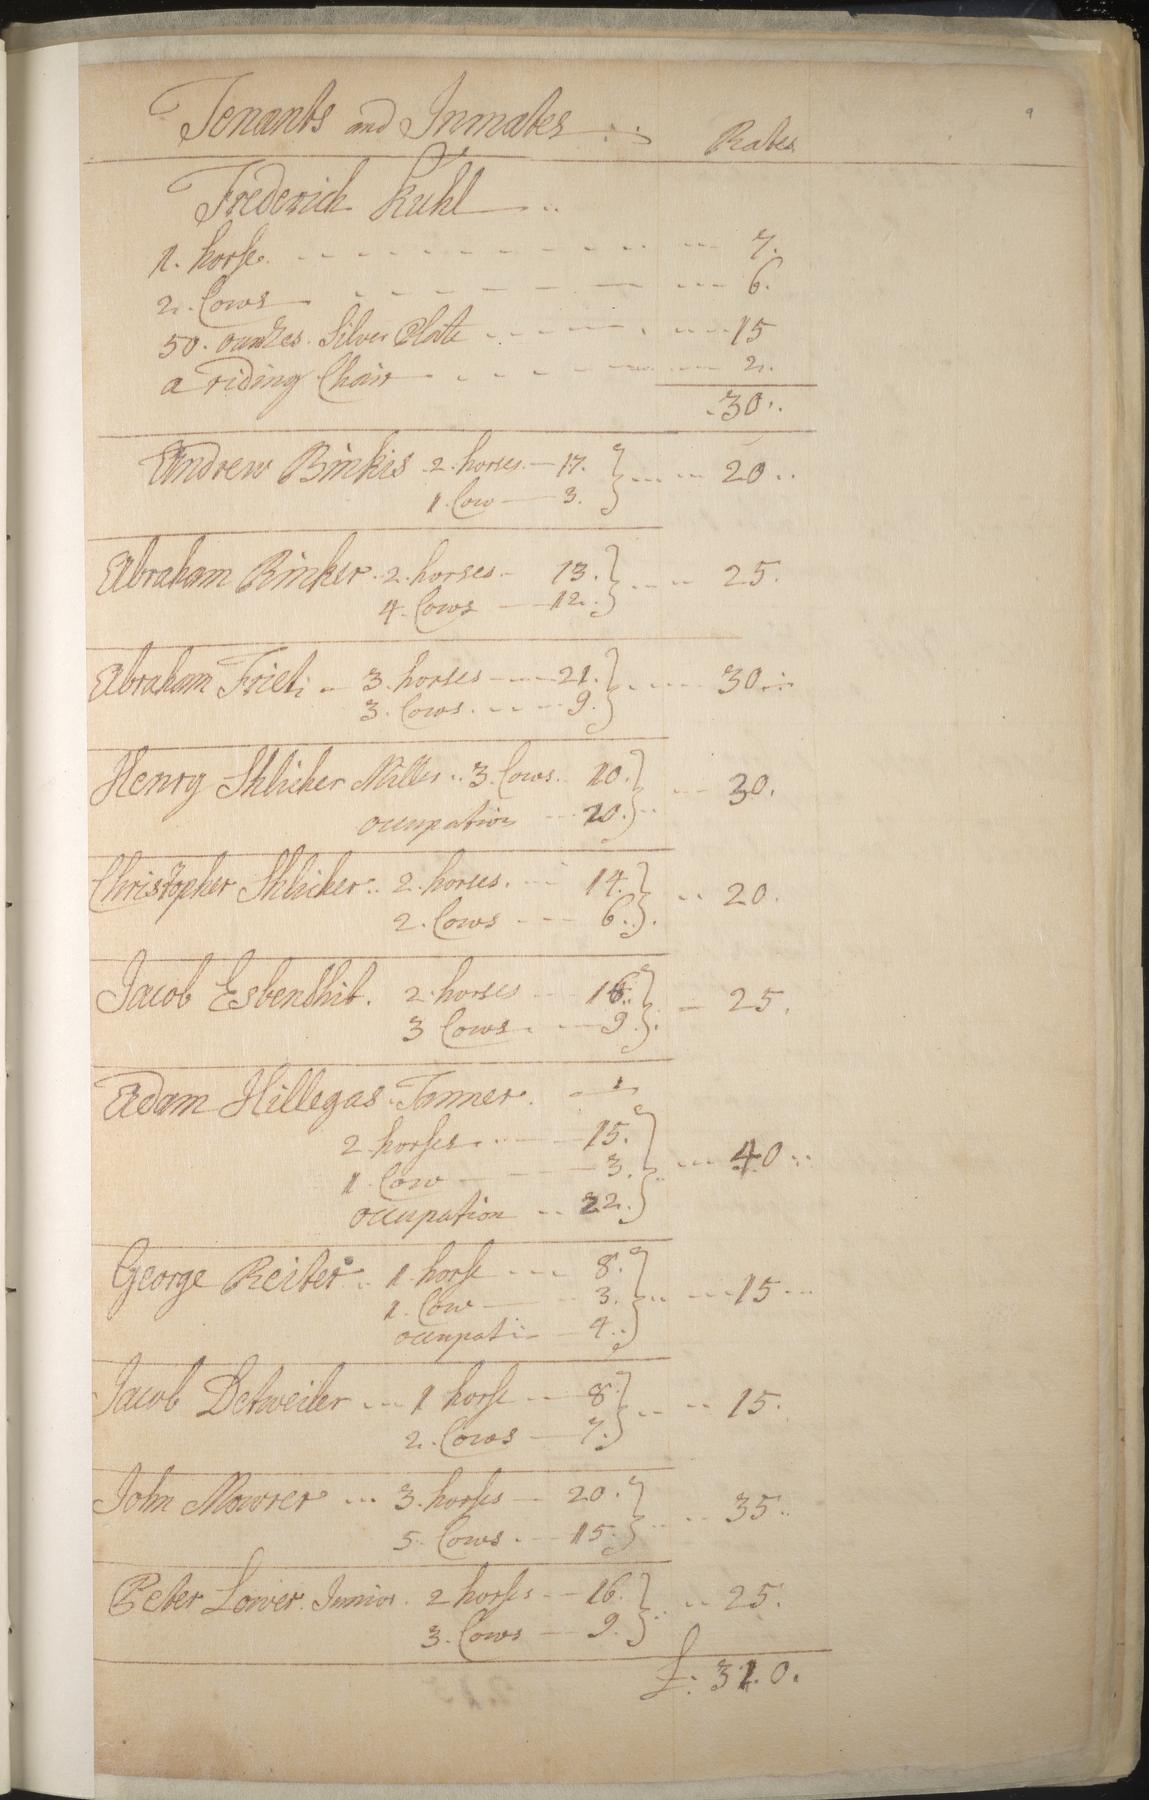 9
Tenants and Inmates Rates
Frederich Kuhl
1. horse 7.
2. Cows 6.
50. ounzes. Silver Plate 15
a riding Chair 2.
30.
Andrew Binkis 2. horses 17. 20
1. Cow 3.
Abraham Binker. 2. horses 13. 25.
4. Cows 12.
Abraham Friet. 3. horses 21. 30
3. Cows. 9.
Henry Shlicher Miller 3. Cows 10. 30.
occupation 20.
Christopher Shlicher 2. horses. 14. 20.
2. Cows 6.
Jacob Esbenshit. 2. horses 16. 25.
3 Cows 9.
Adam Hillegas Tanner.
2 horses 15. 40
1. Cow 3.
occupation 22.
George Reiter 1. horse 8. 15
1. Cow 3.
occupati 4.
Jacob Detweiler 1 horse 8 15.
2. Cows 7.
John Mowrer 3. horses 20. 35
5. Cows 15.
Peter Lower. Junior. 2 horses 16. 25.
3. Cows 9.
£. 310.